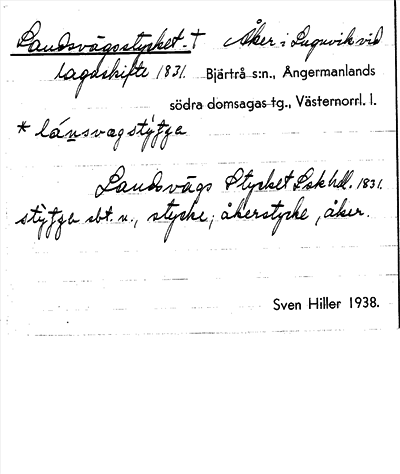 Landsvägsstycket. † Åker i Lugnvik vid
lagaskifte 1831. Bjärtrå s:n., Ångermanlands
södra domsagas tg., Västernorrl. l.
* lánsvagstýʃʃa
Landsvägs Stycket Lskhdl. 1831.
stýʃʃa sbt. n., stycke; åkerstycke, åker.
Sven Hiller 1938.